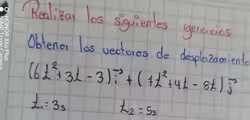 Realizar los siguientes ejercicios
Obtener los vectores de desplazamiento
(6t²+3t-3)i⃗ + (1t²+4t-8t)j⃗
t₁=3s t₂=5s